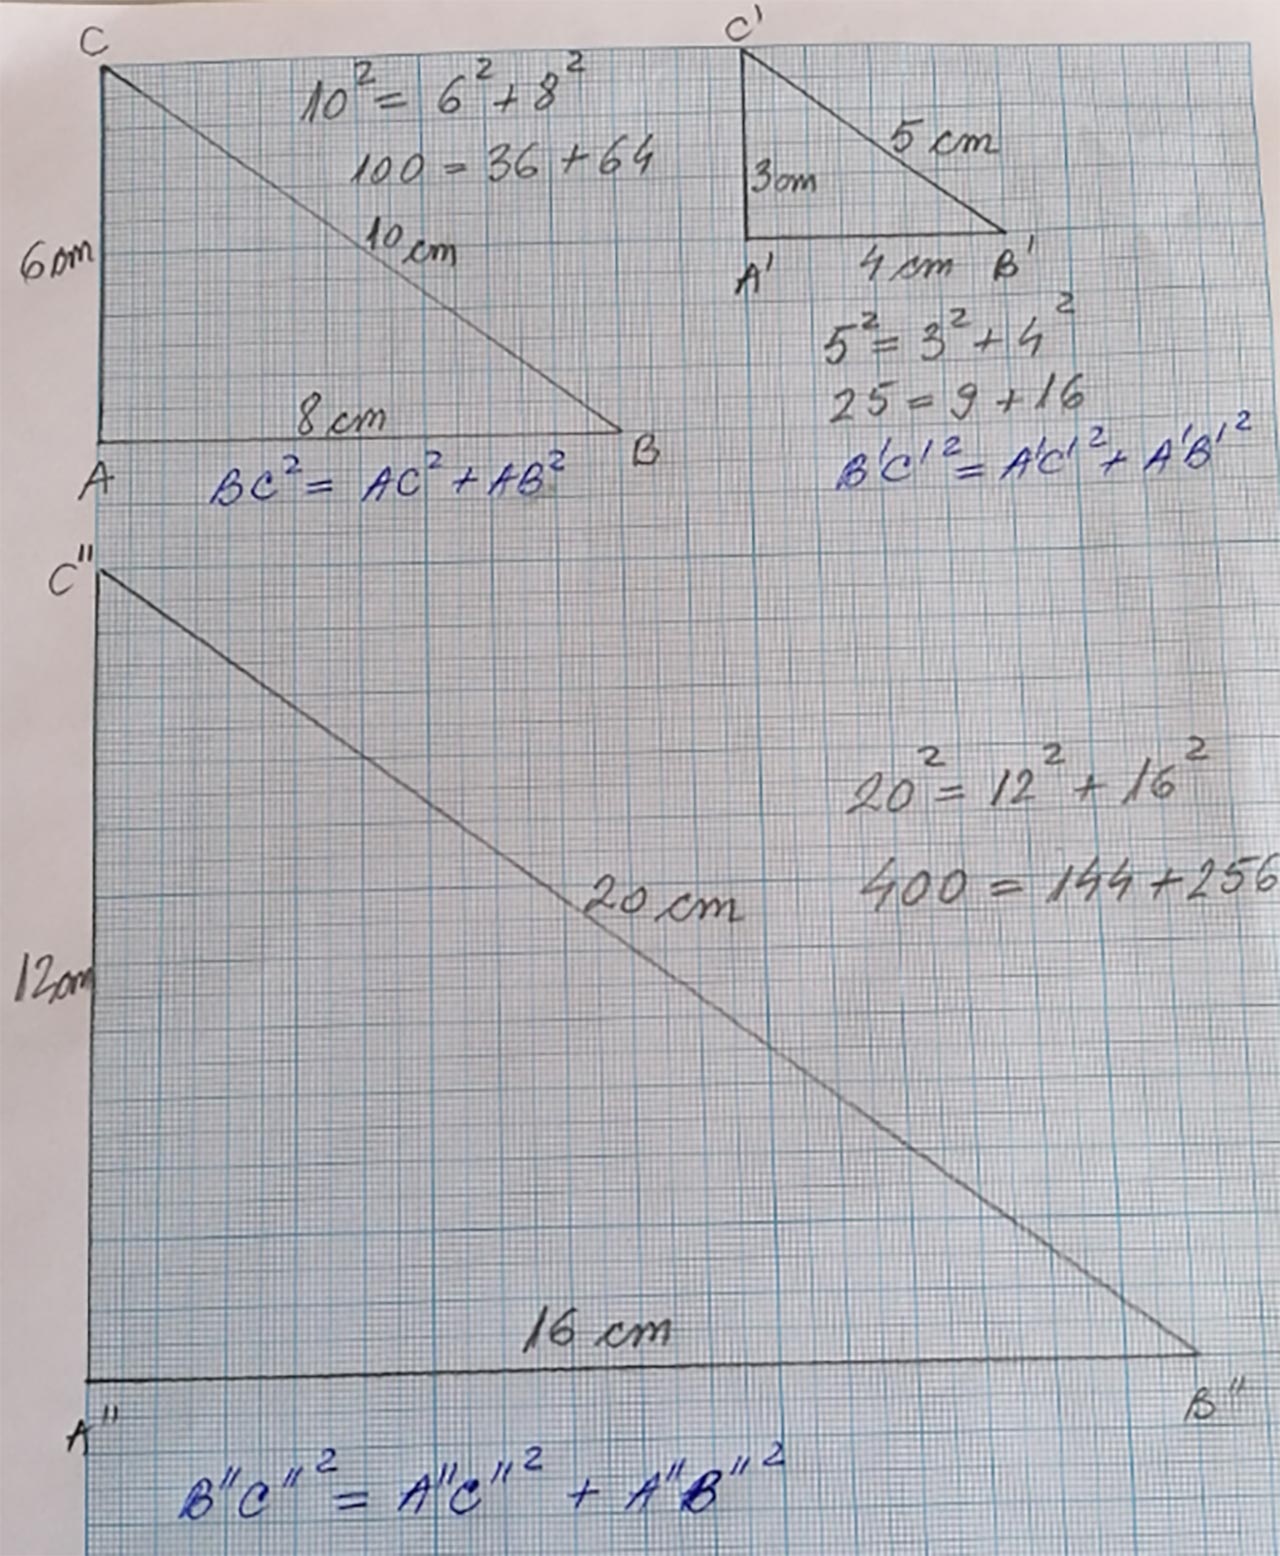 C
10² = 6² + 8²
100 = 36 + 64
10 cm
6cm
8 cm
A
B
BC² = AC² + AB²
C'
5 cm
3cm
A'
4 cm
B'
5² = 3² + 4²
25 = 9 + 16
B'C'² = A'C'² + A'B'²
C"
20² = 12² + 16²
400 = 144 + 256
20 cm
12cm
16 cm
A"
B"
B"C"² = A"C"² + A"B"²